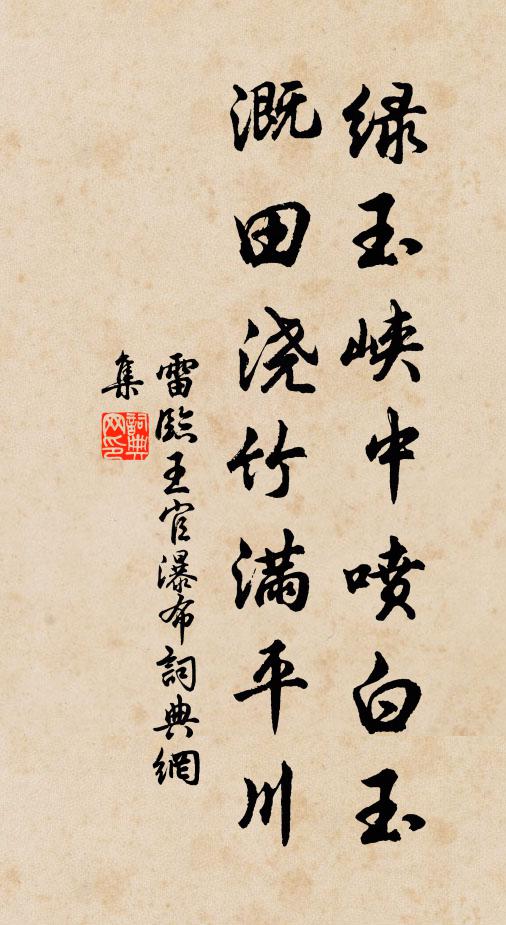 绿玉峡中喷白玉
溉田浇竹满平川
雷臨王官瀑布詞典網
集
詞典网印